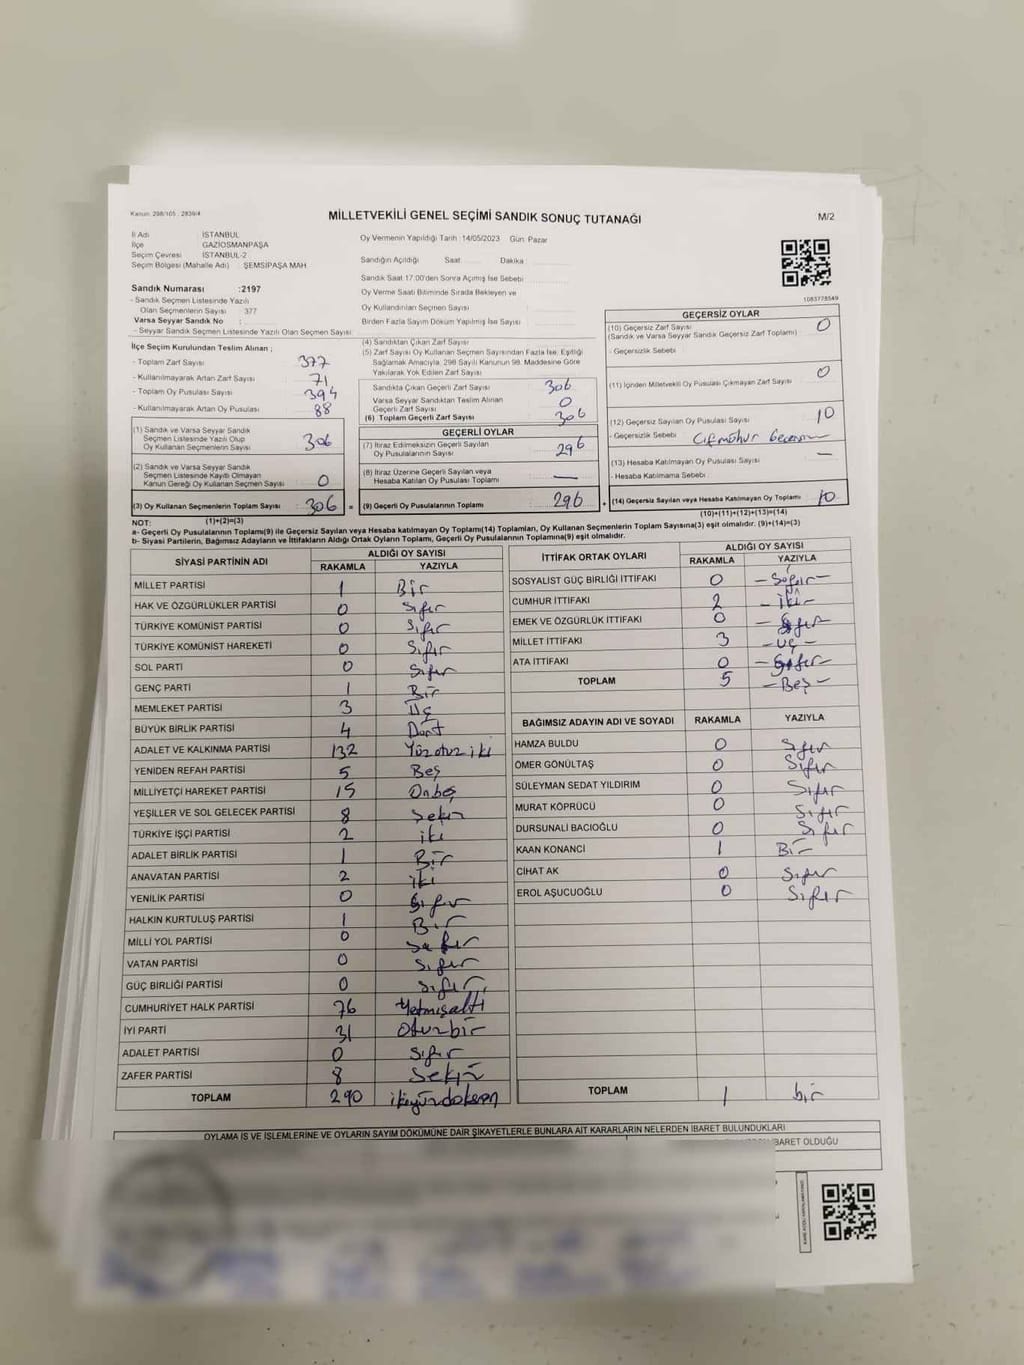 Kanun: 298/105 , 2839/4
MİLLETVEKİLİ GENEL SEÇİMİ SANDIK SONUÇ TUTANAĞI
M/2
İl Adı : İSTANBUL
İlçe : GAZİOSMANPAŞA
Seçim Çevresi : İSTANBUL-2
Seçim Bölgesi (Mahalle Adı) : ŞEMSİPAŞA MAH.
Oy Vermenin Yapıldığı Tarih :14/05/2023 Gün: Pazar
Sandığın Açıldığı Saat Dakika :
Sandık Saat 17.00'den Sonra Açılmış İse Sebebi
Oy Verme Saati Bitiminde Sırada Bekleyen ve
Oy Kullandırılan Seçmen Sayısı
Birden Fazla Sayım Döküm Yapılmış İse Sayısı
1083778549
Sandık Numarası :2197
- Sandık Seçmen Listesinde Yazılı
Olan Seçmenlerin Sayısı : 377
Varsa Seyyar Sandık No :
- Seyyar Sandık Seçmen Listesinde Yazılı Olan Seçmen Sayısı:
İlçe Seçim Kurulundan Teslim Alınan ;
- Toplam Zarf Sayısı : 377
- Kullanılmayarak Artan Zarf Sayısı : 71
- Toplam Oy Pusulası Sayısı : 394
- Kullanılmayarak Artan Oy Pusulası : 88
(1) Sandık ve Varsa Seyyar Sandık
Seçmen Listesinde Yazılı Olup
Oy Kullanan Seçmenlerin Sayısı 306
(2) Sandık ve Varsa Seyyar Sandık
Seçmen Listesinde Kayıtlı Olmayan
Kanun Gereği Oy Kullanan Seçmen Sayısı 0
(3) Oy Kullanan Seçmenlerin Toplam Sayısı 306 =
(1)+(2)=(3)
(4) Sandıktan Çıkan Zarf Sayısı
(5) Zarf Sayısı Oy Kullanan Seçmen Sayısından Fazla İse, Eşitliği
Sağlamak Amacıyla, 298 Sayılı Kanunun 98. Maddesine Göre
Yakılarak Yok Edilen Zarf Sayısı
Sandıkta Çıkan Geçerli Zarf Sayısı 306
Varsa Seyyar Sandıktan Teslim Alınan
Geçerli Zarf Sayısı 0
(6) Toplam Geçerli Zarf Sayısı 306
GEÇERLİ OYLAR
(7) İtiraz Edilmeksizin Geçerli Sayılan
Oy Pusulalarının Sayısı 296
(8) İtiraz Üzerine Geçerli Sayılan veya
Hesaba Katılan Oy Pusulası Toplamı —
(9) Geçerli Oy Pusulalarının Toplamı 296 +
GEÇERSİZ OYLAR
(10) Geçersiz Zarf Sayısı 0
(Sandık ve Varsa Seyyar Sandık Geçersiz Zarf Toplamı)
- Geçersizlik Sebebi
(11) İçinden Milletvekili Oy Pusulası Çıkmayan Zarf Sayısı 0
(12) Geçersiz Sayılan Oy Pusulası Sayısı 10
- Geçersizlik Sebebi
(13) Hesaba Katılmayan Oy Pusulası Sayısı —
- Hesaba Katılmama Sebebi
(14) Geçersiz Sayılan veya Hesaba Katılmayan Oy Toplamı 10
(10)+(11)+(12)+(13)=(14)
NOT:
a- Geçerli Oy Pusulaları(9) ile Geçersiz Sayılan veya Hesaba katılmayan Oy Toplamı(14) Toplamları, Oy Kullanan Seçmenlerin Toplam Sayısına(3) eşit olmalıdır. (9)+(14)=(3)
b- Siyasi Partilerin, Bağımsız Adayların ve İttifakların Aldığı Ortak Oyların Toplamı, Geçerli Oy Pusulalarının Toplamına(9) eşit olmalıdır.
SİYASİ PARTİNİN ADI ALDIĞI OY SAYISI
RAKAMLA YAZIYLA
MİLLET PARTİSİ 1 Bir
HAK VE ÖZGÜRLÜKLER PARTİSİ 0 sıfır
TÜRKİYE KOMÜNİST PARTİSİ 0 sıfır
TÜRKİYE KOMÜNİST HAREKETİ 0 Sıfır
SOL PARTİ 0 sıfır
GENÇ PARTİ 1 Bir
MEMLEKET PARTİSİ 3 Üç
BÜYÜK BİRLİK PARTİSİ 4 Dört
ADALET VE KALKINMA PARTİSİ 132 Yüzotuz iki
YENİDEN REFAH PARTİSİ 5 Beş
MİLLİYETÇİ HAREKET PARTİSİ 15 Onbeş
YEŞİLLER VE SOL GELECEK PARTİSİ 8 Sekiz
TÜRKİYE İŞÇİ PARTİSİ 2 iki
ADALET BİRLİK PARTİSİ 1 Bir
ANAVATAN PARTİSİ 2 iki
YENİLİK PARTİSİ 0 Sıfır
HALKIN KURTULUŞ PARTİSİ 1 Bir
MİLLİ YOL PARTİSİ 0 sıfır
VATAN PARTİSİ 0 sıfır
GÜÇ BİRLİĞİ PARTİSİ 0 sıfır
CUMHURİYET HALK PARTİSİ 76 Yetmişaltı
İYİ PARTİ 31 Oturbir
ADALET PARTİSİ 0 sıfır
ZAFER PARTİSİ 8 Sekiz
TOPLAM 290 ikiyüzdoksan
İTTİFAK ORTAK OYLARI ALDIĞI OY SAYISI
RAKAMLA YAZIYLA
SOSYALİST GÜÇ BİRLİĞİ İTTİFAKI 0 – Sıfır –
CUMHUR İTTİFAKI 2 – iki –
EMEK VE ÖZGÜRLÜK İTTİFAKI 0 – Sıfır
MİLLET İTTİFAKI 3 – üç –
ATA İTTİFAKI 0 – Sıfır –
TOPLAM 5 – Beş –
BAĞIMSIZ ADAYIN ADI VE SOYADI RAKAMLA YAZIYLA
HAMZA BULDU 0 Sıfır
ÖMER GÖNÜLTAŞ 0 Sıfır
SÜLEYMAN SEDAT YILDIRIM 0 Sıfır
MURAT KÖPRÜCÜ 0 Sıfır
DURSUNALİ BACIOĞLU 0 Sıfır
KAAN KONANCİ 1 Bir
CİHAT AK 0 Sıfır
EROL AŞUCUOĞLU 0 Sıfır
TOPLAM 1 bir
OYLAMA İŞ VE İŞLEMLERİNE VE OYLARIN SAYIM DÖKÜMÜNE DAİR ŞİKAYETLERLE BUNLARA AİT KARARLARIN NELERDEN İBARET BULUNDUKLARI
BARET OLDUĞU